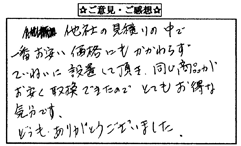 ☆ご意見・ご感想☆
他社の見積りの中で
一番お安い価格にもかかわらず
ていねいに設置して頂き、同じ商品が
お安く取換できたので とてもお得な
気分です。
どうも、ありがとうございました。